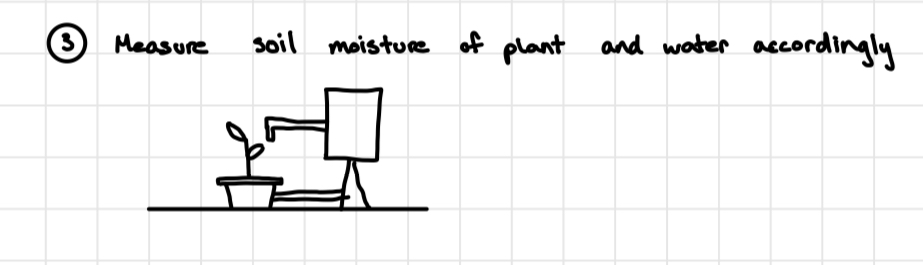 ③ Measure soil moisture of plant and water accordingly